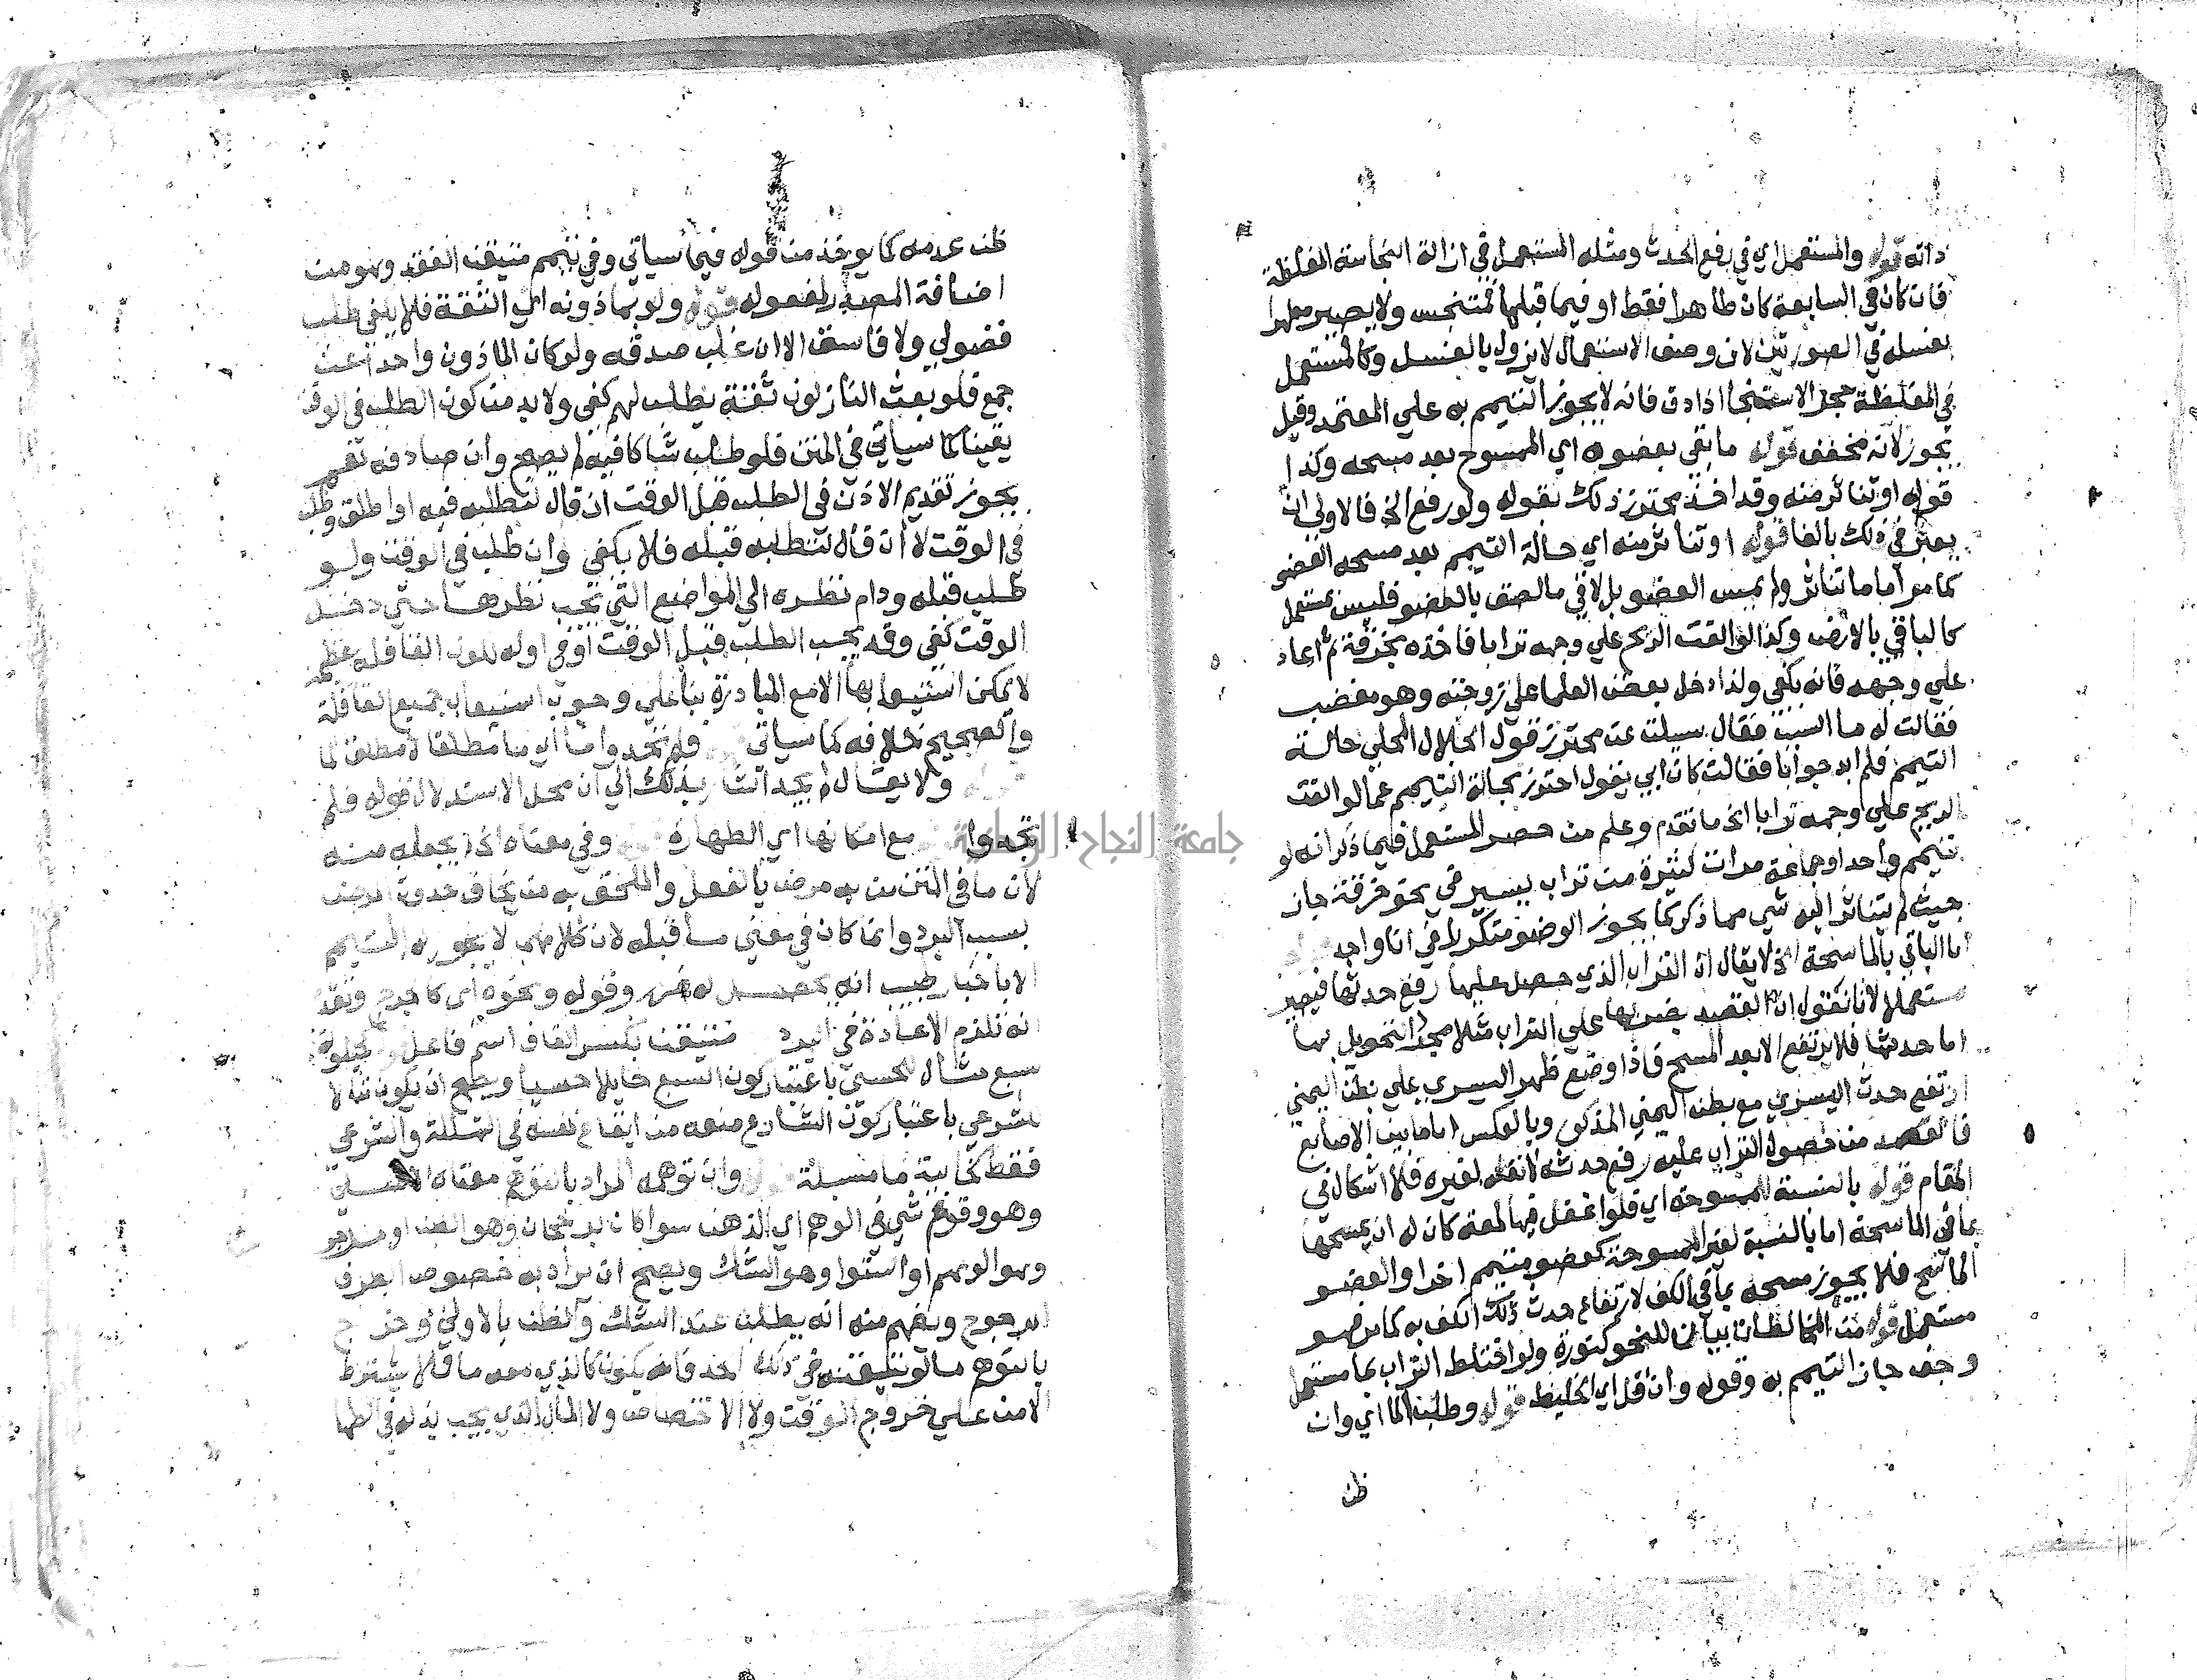 ذاته قوله والمستعمل اي في رفع الحدث ومثله المستعمل في ازالة النجاسة المغلظة
فان كان في السابعة كان طاهرا فقط او فيما قبلها فمتنجس ولا يصير مطهرا
بغسله في الصورتين لان وصف الاستعمال لا يزول بالغسل وكالمستعمل
في المغلظة حجر الاستنجا اذا دق فانه لا يجوز التيمم به علي المعتمد وقيل
يجوز لانه مخفف قوله ما بقي بعضوه اي الممسوح بعد مسحه وكذا
قوله او تناثر منه وقد اخذ محترز ذلك بقوله ولو رفع الخ فالاولي ان
يعبر في ذلك بالفا قوله او تناثر منه اي حالة التيمم بعد مسحه العضو
كما مر اما ما تناثر ولم يمس العضو بل لاقي ما لصق بالعضو فليس بمستعمل
كالباقي بالارض وكذا لو القت الريح علي وجهه ترابا فاخذه بخرقة ثم اعاد
علي وجهه فانه يكفي ولذا دخل بعض العلما علي زوجته وهو مغضب
فقالت له ما السبب فقال سيلت عن محترز قول الجلال المحلي حالة
التيمم فلم ابد جوابا فقالت كان ابي يقول احترز بحالة التيمم عما لو القت
الريح علي وجهه ترابا الخ ما تقدم وعلم من حصر المستعمل فيما ذكر انه لو
تيمم واحد او جماعة مرات كثيرة من تراب يسير في نحو خرقة جاز
حيث لم يتناثر اليه شي مما ذكر كما يجوز الوضو متكررا في انا واحد
اما الباقي بالماسحة الخ لا يقال ان التراب الذي حصل عليها رفع حدثها فيصير
مستعملا لانا نقول ان القصد بضربها علي التراب مثلا مجرد التحويل بها
اما حدثها فلا يرتفع الا بعد المسح فاذا وضع ظهر اليسري علي بطن اليمني
ارتفع حدث اليسري مع بطن اليمني المذكور وبالعكس اما ما بين الاصابع
فالقصد من حصول التراب عليه رفع حدثه لا نقله لغيره فلا اشكال في
المقام قوله بالنسبة للممسوحة اي فلو اغفل فيها لمعة كان له ان يمسحها
بما في الماسحة اما بالنسبة لغير الممسوحة كعضو متيمم اخر او العضو
الماسح فلا يجوز مسحه بما في الكف لارتفاع حدث ذلك الكف به كما مر فهو
مستعمل قوله من المخالطات بيان للنحو كنورة ولو اختلط التراب بما مستعمل
وجف جاز التيمم به وقوله وان قل اي الخليط قوله وطلب الما اي وان
ظن
ظن عدمه كما يوخذ من قوله فيما سياتي وفي تيمم متيقن الفقد وهو من
اضافة المصدر لمفعوله قوله ولو بماذونه اي الثقة فلا يكفي طلب
فضولي ولا فاسق الا ان غلب صدقه ولو كان الماذون واحدا عن
جمع فلو بعث النازلون ثقة يطلب لهم كفي ولا بد من كون الطلب في الوقت
يقينا كما سياتي في المتن فلو طلب شاكا فيه لم يصح وان صادفه نعم
يجوز تقديم الاذن في الطلب قبل الوقت ان قال لتطلبه فيه او اطلق وطلب
في الوقت لا ان قال لتطلبه قبله فلا يكفي وان طلب في الوقت ولو
طلب قبله ودام نظره الي المواضع التي يجب نظرها حتي دخل
الوقت كفي وقد يجب الطلب قبل الوقت او في اوله لكون القافلة عظيمة
لا يمكن استيعابها الا مع المبادرة بنا علي وجوب استيعاب جميع القافلة
والصحيح خلافه كما سياتي فلم تجدوا ما اي ما مطلقا لا مطلق ما
ولا يقال لم يجد اشار بذلك الي ان محل الاستدلال قوله فلم
تجدوا مع امكانها اي الطهارة وفي معناه الخ لم يجعله منه
لان ما في المتن من به مرض بالفعل والملحق به من يخاف حدوث المرض
بسبب البرد وانما كان في معني ما قبله لان كلا منهما لا يجوز له التيمم
الا باخبار طبيب انه يحصل له ضرر وقوله ونحوه اي كالجرح وتقدم
انه تلزم الاعادة في البرد متيقنا بكسر القاف اسم فاعل كحيلولة
سبع مثال للحسي باعتبار كون السبع حايلا حسيا ويصح ان يكون مثالا
للشرعي باعتبار كون الشارع منعه من ايقاع نفسه في التهلكة والشرعي
فقط كخابية ما مسبلة وان توهمه المراد بالتوهم معناه
وهو وقوع شي في الوهم اي الذهن سوا كان برجحان وهو الظن او مرجوح
وهو الوهم او استوا وهو الشك ويصح ان يراد به خصوص الطرف
المرجوح ويفهم منه انه يطلب عند الشك والظن بالاولي وخرج
بالتوهم ما لو تيقنه في ذلك الحد فانه يكون كالذي معه ما فلا يشترط
الامن علي خروج الوقت ولا الاختصاص ولا المال الذي يجب بذله في الطها
جامعة النجاح الوطنية